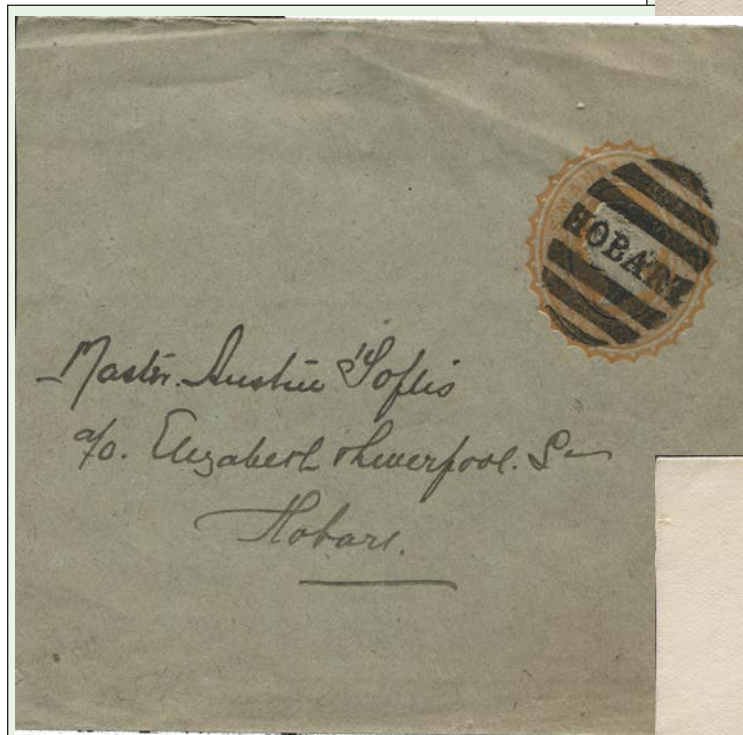 HOBART
Master. Austin
c/o. Elizabeth & Liverpool. St
Hobart.